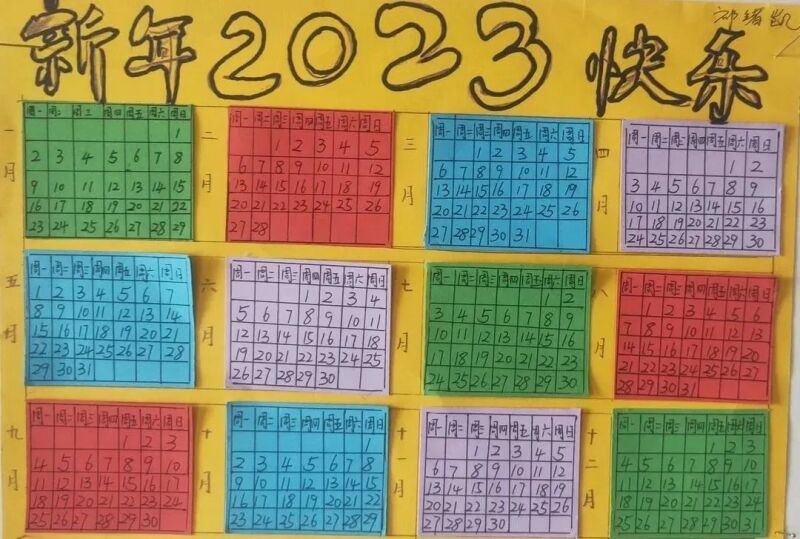 新年2023快乐
一月
周一 周二 周三 周四 周五 周六 周日
1
2 3 4 5 6 7 8
9 10 11 12 13 14 15
16 17 18 19 20 21 22
23 24 25 26 27 28 29
二月
周一 周二 周三 周四 周五 周六 周日
1 2 3 4 5
6 7 8 9 10 11 12
13 14 15 16 17 18 19
20 21 22 23 24 25 26
27 28
三月
周一 周二 周三 周四 周五 周六 周日
1 2 3 4 5
6 7 8 9 10 11 12
13 14 15 16 17 18 19
20 21 22 23 24 25 26
27 28 29 30 31
四月
周一 周二 周三 周四 周五 周六 周日
1 2
3 4 5 6 7 8 9
10 11 12 13 14 15 16
17 18 19 20 21 22 23
24 25 26 27 28 29 30
五月
周一 周二 周三 周四 周五 周六 周日
1 2 3 4 5 6 7
8 9 10 11 12 13 14
15 16 17 18 19 20 21
22 23 24 25 26 27 28
29 30 31
六月
周一 周二 周三 周四 周五 周六 周日
1 2 3 4
5 6 7 8 9 10 11
12 13 14 15 16 17 18
19 20 21 22 23 24 25
26 27 28 29 30
七月
周一 周二 周三 周四 周五 周六 周日
1 2
3 4 5 6 7 8 9
10 11 12 13 14 15 16
17 18 19 20 21 22 23
24 25 26 27 28 29 30
八月
周一 周二 周三 周四 周五 周六 周日
1 2 3 4 5 6
7 8 9 10 11 12 13
14 15 16 17 18 19 20
21 22 23 24 25 26 27
28 29 30 31
九月
周一 周二 周三 周四 周五 周六 周日
1 2 3
4 5 6 7 8 9 10
11 12 13 14 15 16 17
18 19 20 21 22 23 24
25 26 27 28 29 30
十月
周一 周二 周三 周四 周五 周六 周日
1
2 3 4 5 6 7 8
9 10 11 12 13 14 15
16 17 18 19 20 21 22
23 24 25 26 27 28 29
十一月
周一 周二 周三 周四 周五 周六 周日
1 2 3 4 5
6 7 8 9 10 11 12
13 14 15 16 17 18 19
20 21 22 23 24 25 26
27 28 29 30
十二月
周一 周二 周三 周四 周五 周六 周日
1 2 3
4 5 6 7 8 9 10
11 12 13 14 15 16 17
18 19 20 21 22 23 24
25 26 27 28 29 30 31